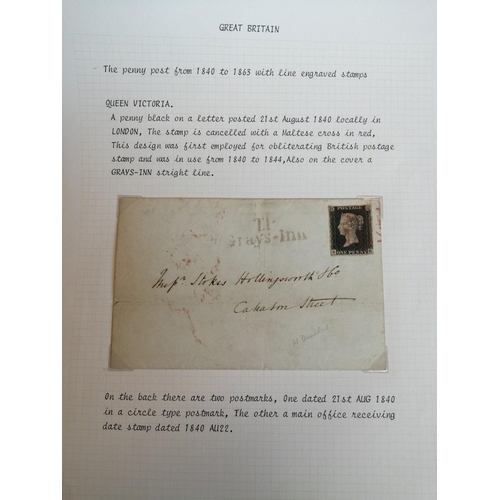 GREAT BRITAIN
The penny post from 1840 to 1865 with line engraved stamps
QUEEN VICTORIA.
A penny black on a letter posted 21st August 1840 locally in
LONDON, The stamp is cancelled with a Maltese cross in red,
This design was first employed for obliterating British postage
stamp and was in use from 1840 to 1844,Also on the cover a
GRAYS-INN stright line.
T.P
Grays-Inn
POSTAGE
ONE PENNY
Messrs Stokes Hollingsworth & Co
Cateaton Street
On the back there are two postmarks, One dated 21st AUG 1840
in a circle type postmark, The other a main office receiving
date stamp dated 1840 AU22.